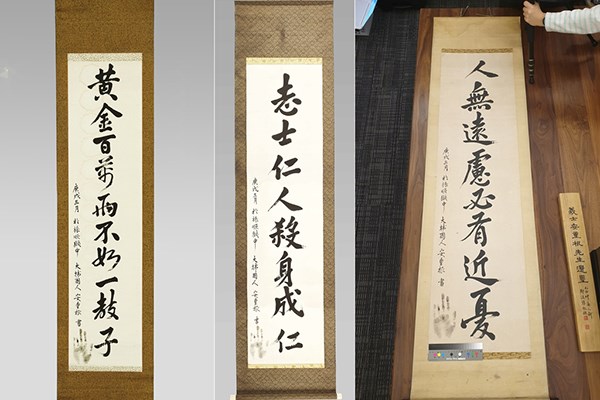 黃金百萬兩不如一敎子
庚戌三月 於旅順獄中 大韓國人 安重根 書
志士仁人殺身成仁
庚戌三月 於旅順獄中 大韓國人 安重根 書
人無遠慮必有近憂
庚戌三月 於旅順獄中 大韓國人 安重根 書
義士安重根先生遺墨